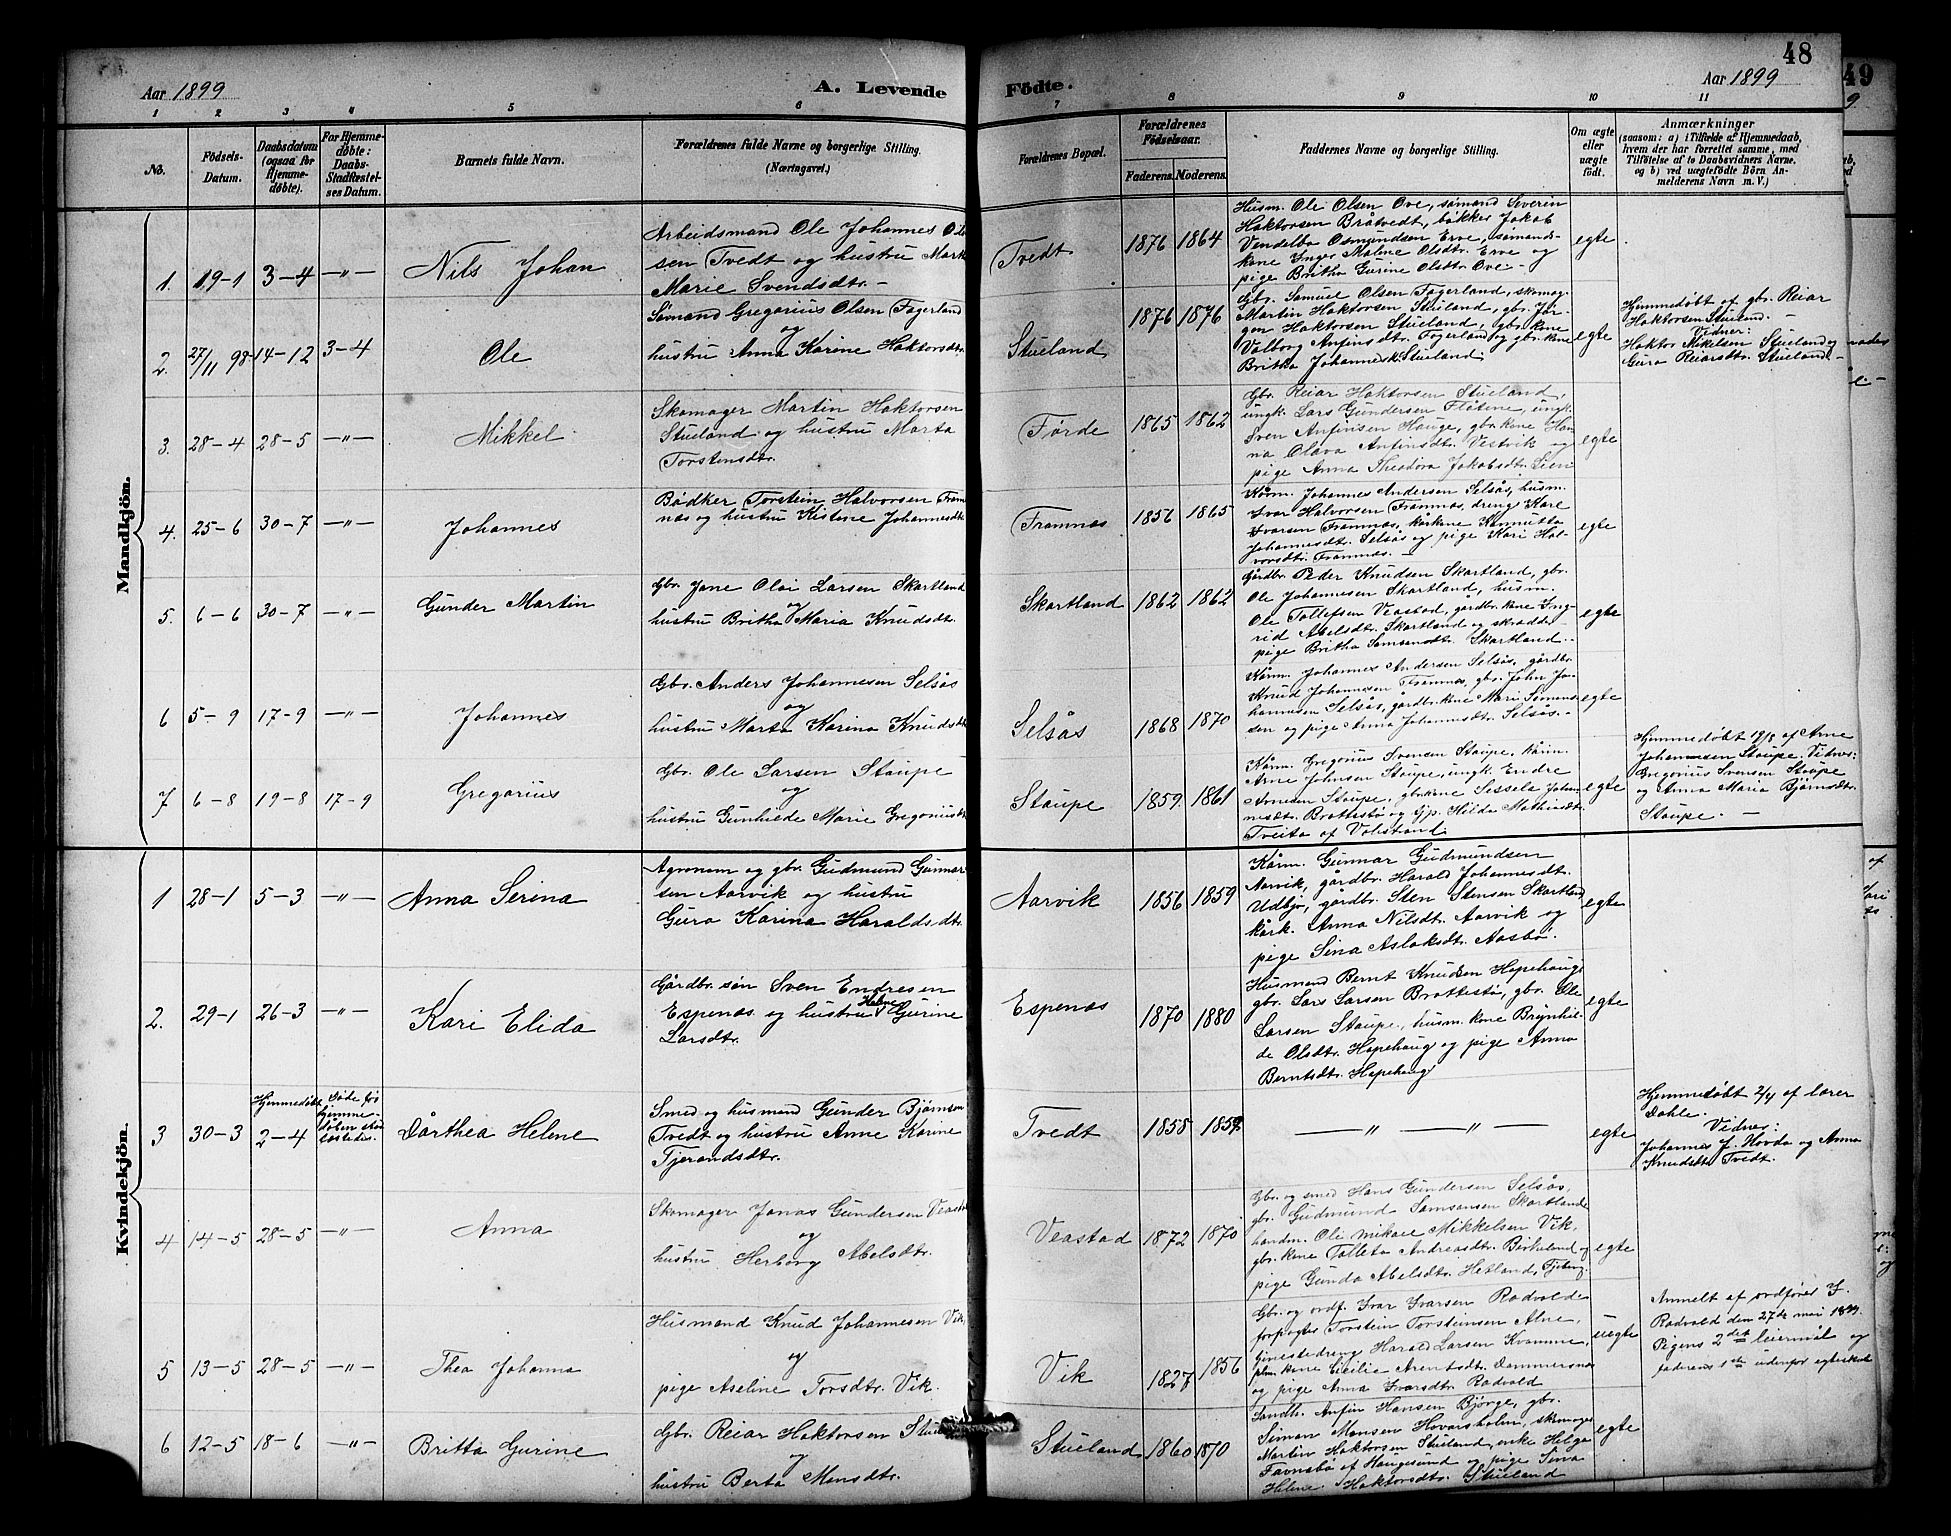 48
49
Aar 1899
A. Levende
Födte.
Aar 1899
1 2 3 4 5 6 7 8 9 10 11
No.
Födsels-
Datum.
Daabsdatum
(ogsaa for
Hjemme-
döbte).
For Hjemme-
döbte:
Daabs-
Stadfæstel-
ses Datum.
Barnets fulde Navn.
Forældrenes fulde Navne og borgerlige Stilling.
(Næringsvei.)
Forældrenes Bopæl.
Forældrenes
Födselsaar.
Faderens. Moderens.
Faddernes Navne og borgerlige Stilling.
Om ægte
eller
uægte
födt.
Anmærkninger
(saasom: a) i Tilfælde af Hjemmedaab,
hvem der har forrettet samme, med
Tilföielse af to Daabsvidners Navne,
og b) ved uægtefödte Börn An-
melderens Navn m. V.)
Mandkjön.
1. 19-1 3-4 -"- Nils Johan
Arbeidsmand Ole Johannes Ol-
sen Tvedt og hustru
Marie Svendsdtr. -
Tvedt 1876 1864
Husm. Ole Olsen Ove, sømand Severin
Haktorsen Bråtvedt, bøkker Jakob
Vendelbo Osmundsen Erve, sømands-
kone Inger Malene Olsdtr. Erve og
pige Britha Gurine Olsdtr. Ove -
egte
2. 27/11 98 14-12 3-4 Ole
Sømand Gregorius Olsen Fagerland
og
hustru Anna Karine Haktorsdtr.
Stueland 1876 1876
Gbr. Samuel Olsen Fagerland, skomag.
Martin Haktorsen Stueland, gbr. Jør-
gen Haktorsen Stueland, gbr. kone
Valborg Anfinsdtr. Fagerland og gbr. kone
Britha Johannesdtr. Stueland.
egte
Hjemmedøbt af gbr. Reiar
Haktorsen Stueland. -
Vidner:
Haktor Mikelsen Stueland og
Guro Reiarsdtr. Stueland. -
3. 28-4 28-5 -"- Mikkel
Skomager Martin Haktorsen
Stueland og hustru Marta
Torstensdtr.
Førde 1865 1862
Gbr. Reiar Haktorsen Stueland,
ungk. Lars Gundersen Flåtene, ungk.
Sven Anfinsen Hauge, gbr. kone Han-
na Olava Anfinsdtr. Vestvik og
pige Anna Theodora Jakobsdtr. Lien
egte
4. 25-6 30-7 -"- Johannes
Bødker Torstein Halvorsen Fram
næs og hustru Kistine Johannesdtr
Framnæs 1856 1865
Kårm. Johannes Andersen Selsås, husm.
Ivar Halvorsen Framnæs, dreng Kåre
Ivarsen Framnæs, kårkone Kannutta
Johannesdtr. Selsås og pige Kari Hal-
vorsdtr. Framnæs. -
egte
5. 6-6 30-7 -"- Gunder Martin
Gbr. Jone Olai Larsen Skartland
og
hustru Britha Maria Knudsdtr.
Skartland 1862 1862
Gårdbr. Peder Knudsen Skartland, gbr.
Ole Johannesen Skartland, husm.
Ole Tollefsen Veastad, gårdbr. kone Ing-
rid Abelsdtr. Skartland og skrædder-
pige Britha Samsonsdtr. Skartland. -
egte
6 5-9 17-9 -"- Johannes
Gbr. Anders Johannesen Selsås
og
hustru Marta Karina Knudsdtr
Selsås 1868 1870
Kårm. Johannes Andersen Selsås, gårdbr.
Knud Johannesen Framnes, gbr. John Jo-
hannesen Selsås, gårdbr. kone Mari Simon-
sen og pige Anna Johannesdtr. Selsås. -
egte
7 6-8 19-8 17-9 Gregorius
Gbr. Ole Larsen Staupe
og
hustru Gunhilde Marie Gregoriusdtr
Staupe 1859. 1861
Kårm. Gregorius Svensen Staupe, kårm.
Arne Johnsen Staupe, ungk. Endre
Arnesen Staupe, gbrkone Sissela Johan-
nesdtr. Brattestø og Gjp. Hilda Mathiasdtr.
Tveita af Valestrand.
egte
Hjemmedøbt 19/8 af Arne
Johannesen Staupe. Vidner:
Gregorius Svensen Staupe
og Anna Maria Bjørnsdtr.
Staupe. -
Kvindekjön.
1 28-1 5-3 -"- Anna Serina
Agronom og gbr. Gudmund Gunnar
sen Aarvik og hustru
Guro Karina Haraldsdtr.
Aarvik 1856 1859
Kårm. Gunnar Gudmundsen
Aarvik, gårdbr. Harald Johannesdtr.
Udbjo, gårdbr. Sten Stensen Skartland,
kårk. Anna Nilsdtr. Aarvik og
pige Sina Aslaksdtr. Aasbø.
egte
2. 29-1 26-3 -"- Kari Elida
Gårdbr. søn Sven Endresen
Espenæs og hustru Helene Gurine
Larsdtr.
Espenæs 1870 1880
Husmand Bernt Knudsen Hapehaug,
gbr. Lars Larsen Brattestø, gbr. Ole
Larsen Staupe, husm. kone Brynhil-
de Olsdtr. Hapehaug og pige Anna
Berntsdtr. Hapehaug
egte
3 30-3 Hjemmedøbt
2-4
Døde før
hjemme-
dåben stad
fæstedes.
Dårthea Helene
Smed og husmand Gunder Bjørnsen
Tvedt og hustru Anne Karine
Tjerandsdtr.
Tvedt 1858 1859.
— " — " —
egte
Hjemmedøbt 2/4 af lærer
Dahle.
Vidner:
Johannes J. Hovda og Anna
Knudsdtr. Tvedt.
4 14-5 28-5 -"- Anna
Skomager Jonas Gundersen Veastad
og
hustru Herborg Abelsdtr.
Veastad 1872 1870
Gbr. og smed Hans Gundersen Selsås,
gbr. Gudmund Samsonsen Skartland,
handm. Ole Mikael Mikkelsen Vik,
gbr. kone Tolleta Andreasdtr. Birkeland og
pige Gunda Abelsdtr. Hetland, Fjeberg.
egte
5 13-5 28-5 -"- Thea Johanna
Husmand Knud Johannesen Vik,
og
pige Aseline Torsdtr. Vik.
Vik 1827 1856
Gbr. og ordf. Ivar Ivarsen Radvold
forpagter Torstein Torsteinsen Alne,
tjenestedreng Harald Larsen Kvamme,
kone Cicilie Arentsdtr. Dommersnæs
og pige Anna Ivarsdtr. Radvold
uegte
Anmelt af ordfører I.
Radvold den 27de mai 1899.
Pigens 2det leiermål og
faderens 1ste udenfor egteskab
6 12-5 18-6 -"- Britta Gurine
Gbr. Reiar Haktorsen Stueland
og
hustru Berta Monsdtr.
Stueland 1860 1870
Landh. Anfin Hansen Bjørge, gbr.
Simon Monsen Hovarsholm, skomager
Martin Haktorsen Stueland, enke Helga
Favnsbø af Haugesund og pige Sina
Helene Haktorsdtr. Stueland
egte